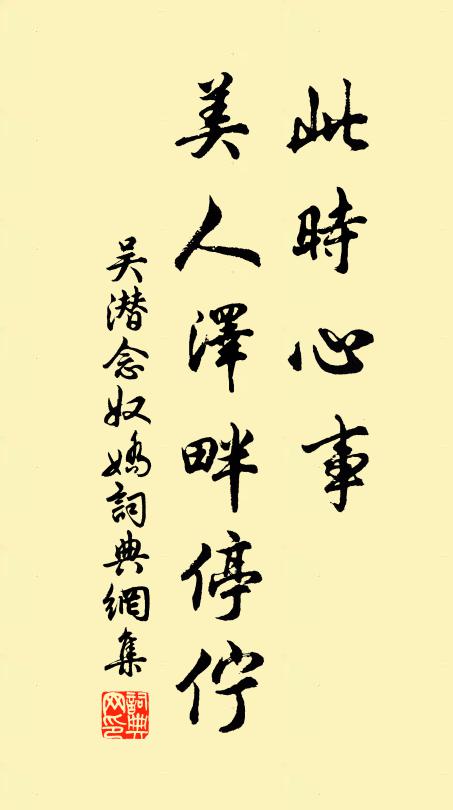 此時心事
美人澤畔停佇
吴潜念奴嬌詞典網集
詞典网印